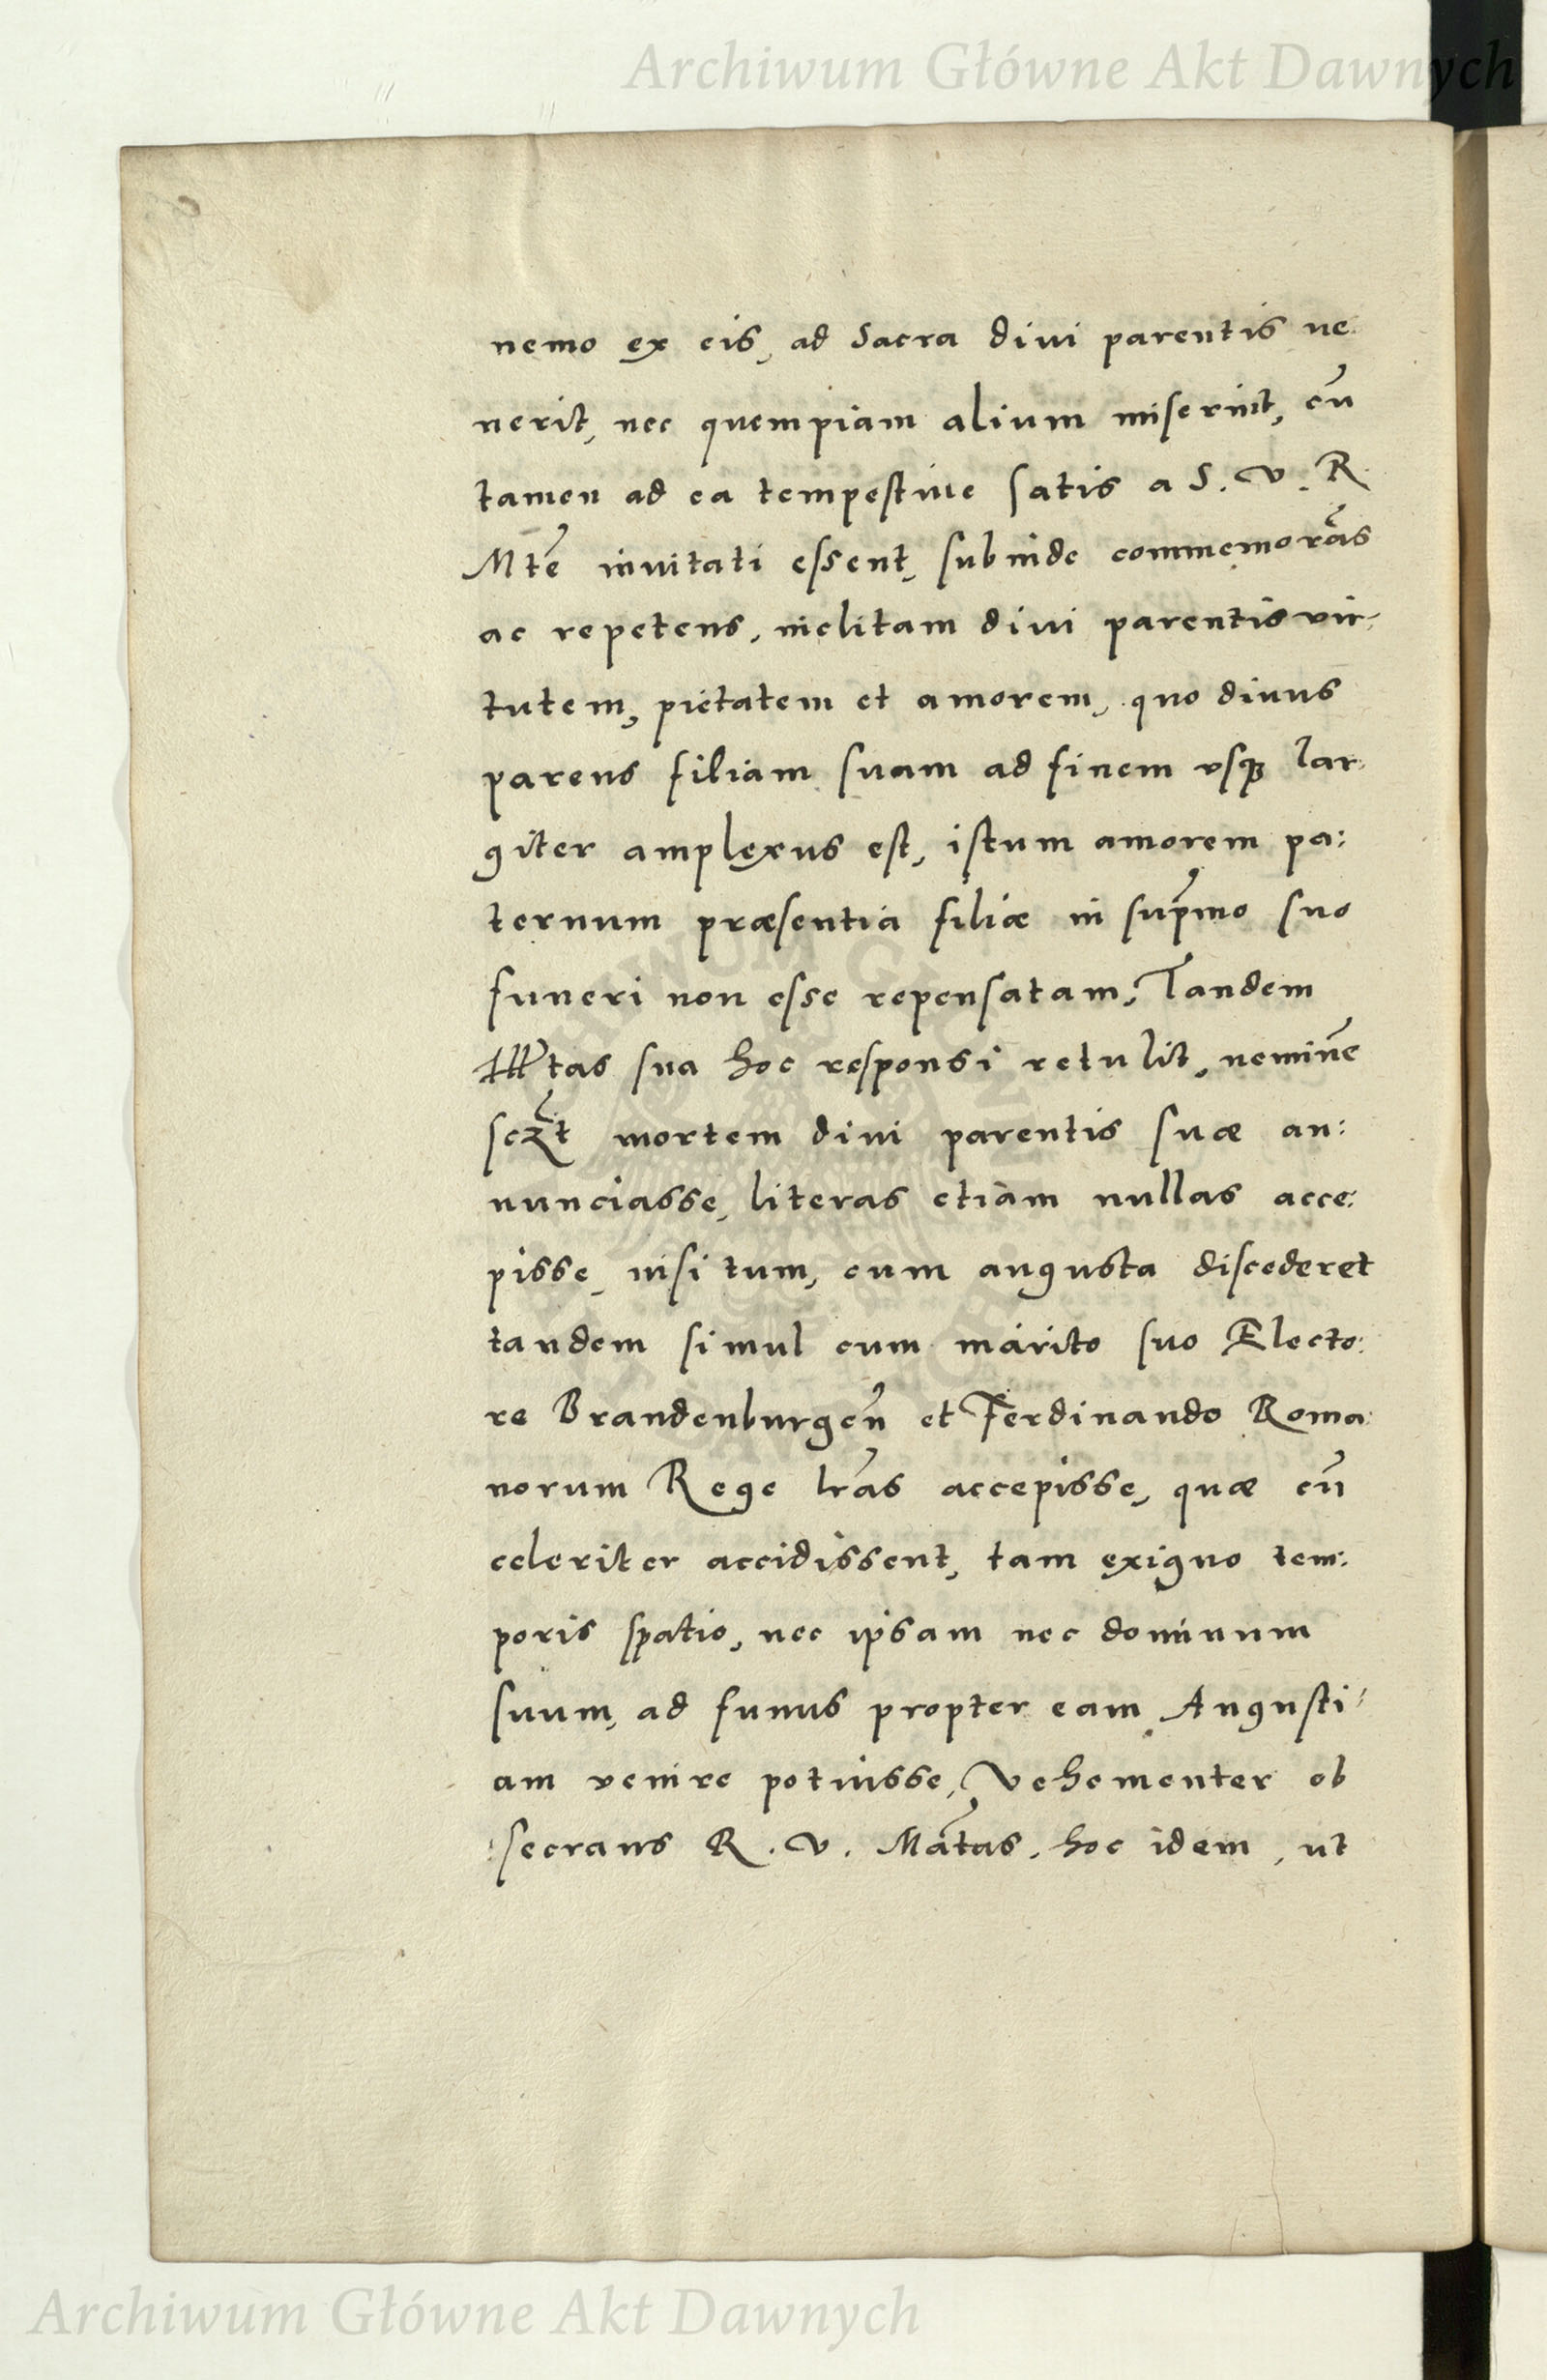 Archiwum Główne Akt Dawnych
nemo ex eis, ad Sacra diui parentis ue:
nerit, nec quempiam alium miserint, cū
tamen ad ea tempestiue satis a S. V. R.
Mtē inuitati essent, subinde commemorās
ac repetens, inclitam diui parentis vir:
tutem, pietatem et amorem, quo diuus
parens filiam suam ad finem vsqȝ lar:
giter amplexus est, istum amorem pa:
ternum præsentia filiæ in sup̄mo suo
funeri non esse repensatam, Tandem
tas sua hoc responsi retulit, neminē
mortem diui parentis suæ an:
nunciasse, literas etiam nullas acce:
pisse, nisi tum, cum augusta discederet
tandem simul cum marito suo Electo:
re Brandenburgeñ et Ferdinando Roma:
norum Rege lr̄as accepisse, quæ cū
celeriter accidissent, tam exiguo tem:
poris spatio, nec ipsam nec dominum
suum, ad funus propter eam Angusti:
am venire potuisse, Vehementer ob
:secrans R. V. Mātas, hoc idem, ut
Archiwum Główne Akt Dawnych